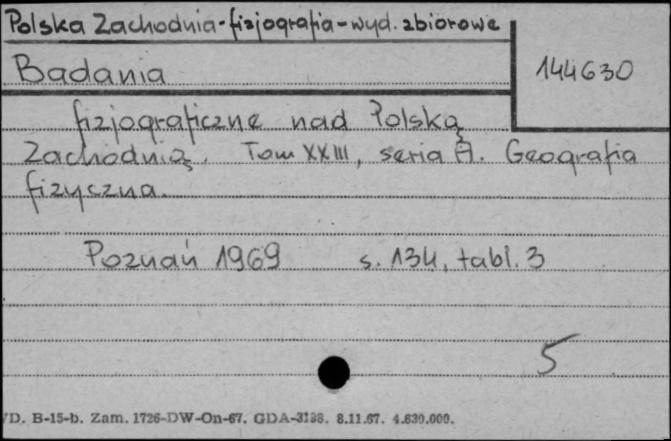 Polska Zachodnia-fizjografia-wyd. zbiorowe
Badania
144630
fizjograficzne nad Polską
Zachodnią. Tom XXIII, seria A. Geografia
fizyczna.
Poznań 1969 s. 134, tabl. 3
5
VD. B-15-b. Zam. 1726-DW-On-67. GDA-3198. 8.11.67. 4.630.000.